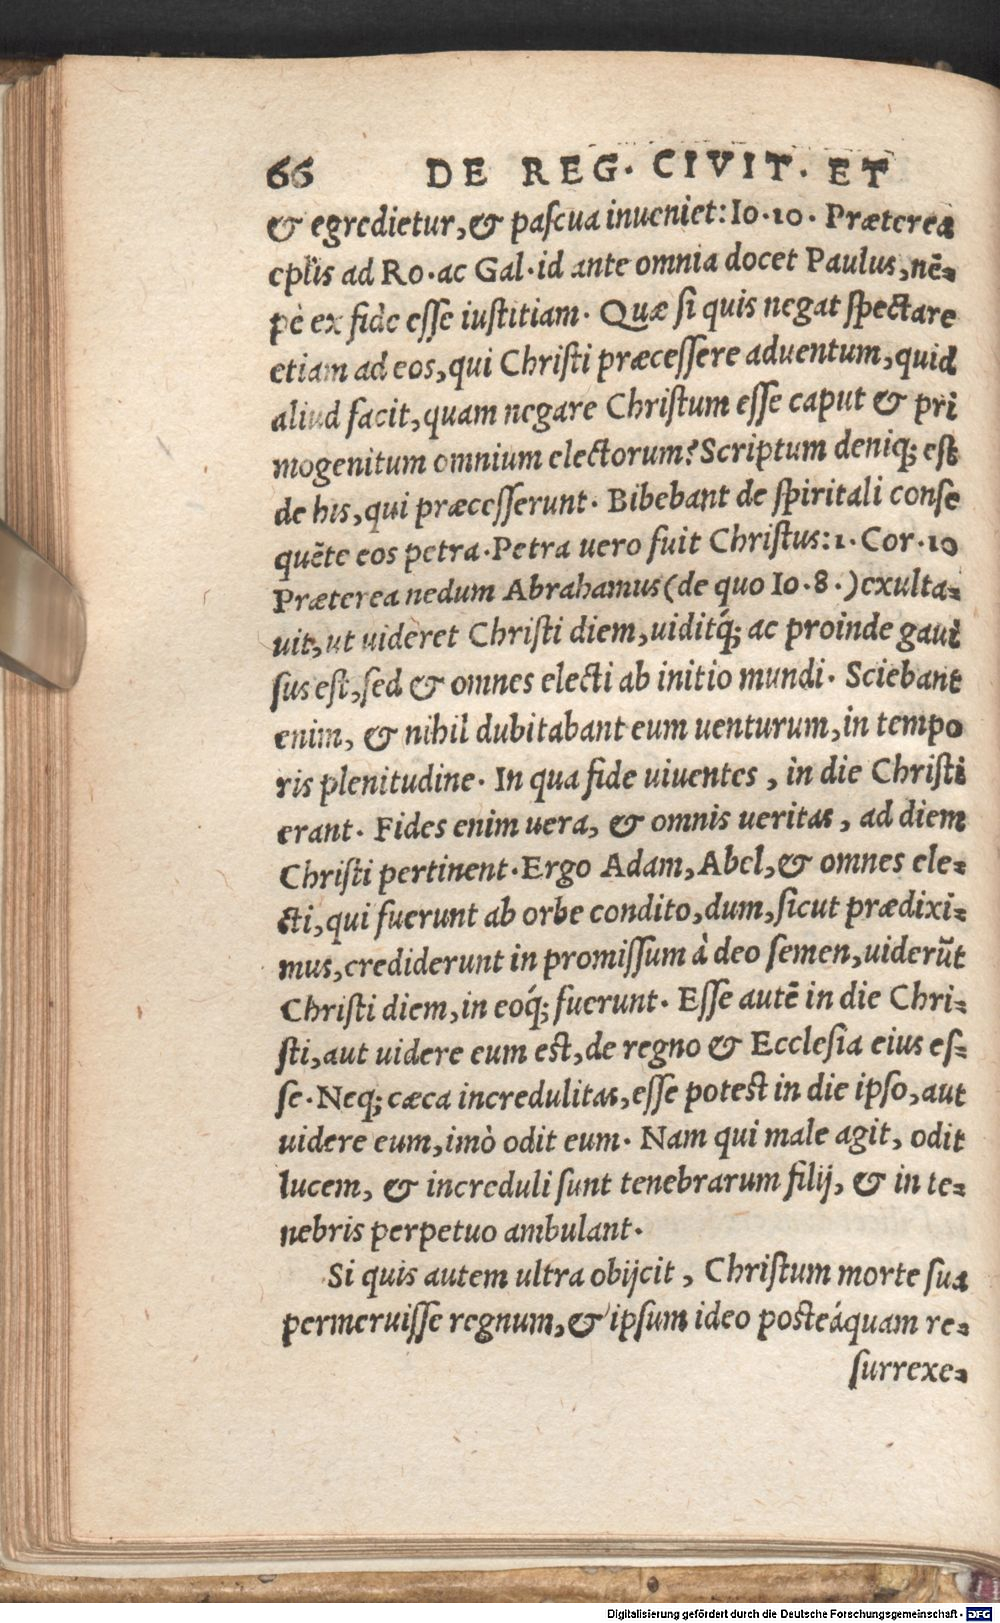 66 DE REG. CIVIT. ET
& egredietur, & pascua inueniet: Io. 10. Præterea
eplis ad Ro. ac Gal. id ante omnia docet Paulus, nē-
pè ex fide esse iustitiam. Quæ si quis negat spectare
etiam ad eos, qui Christi præcessere aduentum, quid
aliud facit, quam negare Christum esse caput & pri
mogenitum omnium electorum? Scriptum deniq; est
de his, qui præcesserunt. Bibebant de spiritali conse
quēte eos petra. Petra uero fuit Christus: 1. Cor. 10
Præterea nedum Abrahamus (de quo Io. 8.) exulta-
uit, ut uideret Christi diem, uiditq́; ac proinde gaui
sus est, sed & omnes electi ab initio mundi. Sciebant
enim, & nihil dubitabant eum uenturum, in tempo
ris plenitudine. In qua fide uiuentes, in die Christi
erant. Fides enim uera, & omnis ueritas, ad diem
Christi pertinent. Ergo Adam, Abel, & omnes ele-
cti, qui fuerunt ab orbe condito, dum, sicut prædixi-
mus, crediderunt in promissum à deo semen, uiderūt
Christi diem, in eoq́; fuerunt. Esse autē in die Chri-
sti, aut uidere eum est, de regno & Ecclesia eius es-
se. Neq; cæca incredulitas, esse potest in die ipso, aut
uidere eum, imò odit eum. Nam qui male agit, odit
lucem, & increduli sunt tenebrarum filij, & in te-
nebris perpetuo ambulant.
Si quis autem ultra obijcit, Christum morte sua
permeruisse regnum, & ipsum ideo posteáquam re-
surrexe-
Digitalisierung gefördert durch die Deutsche Forschungsgemeinschaft - DFG